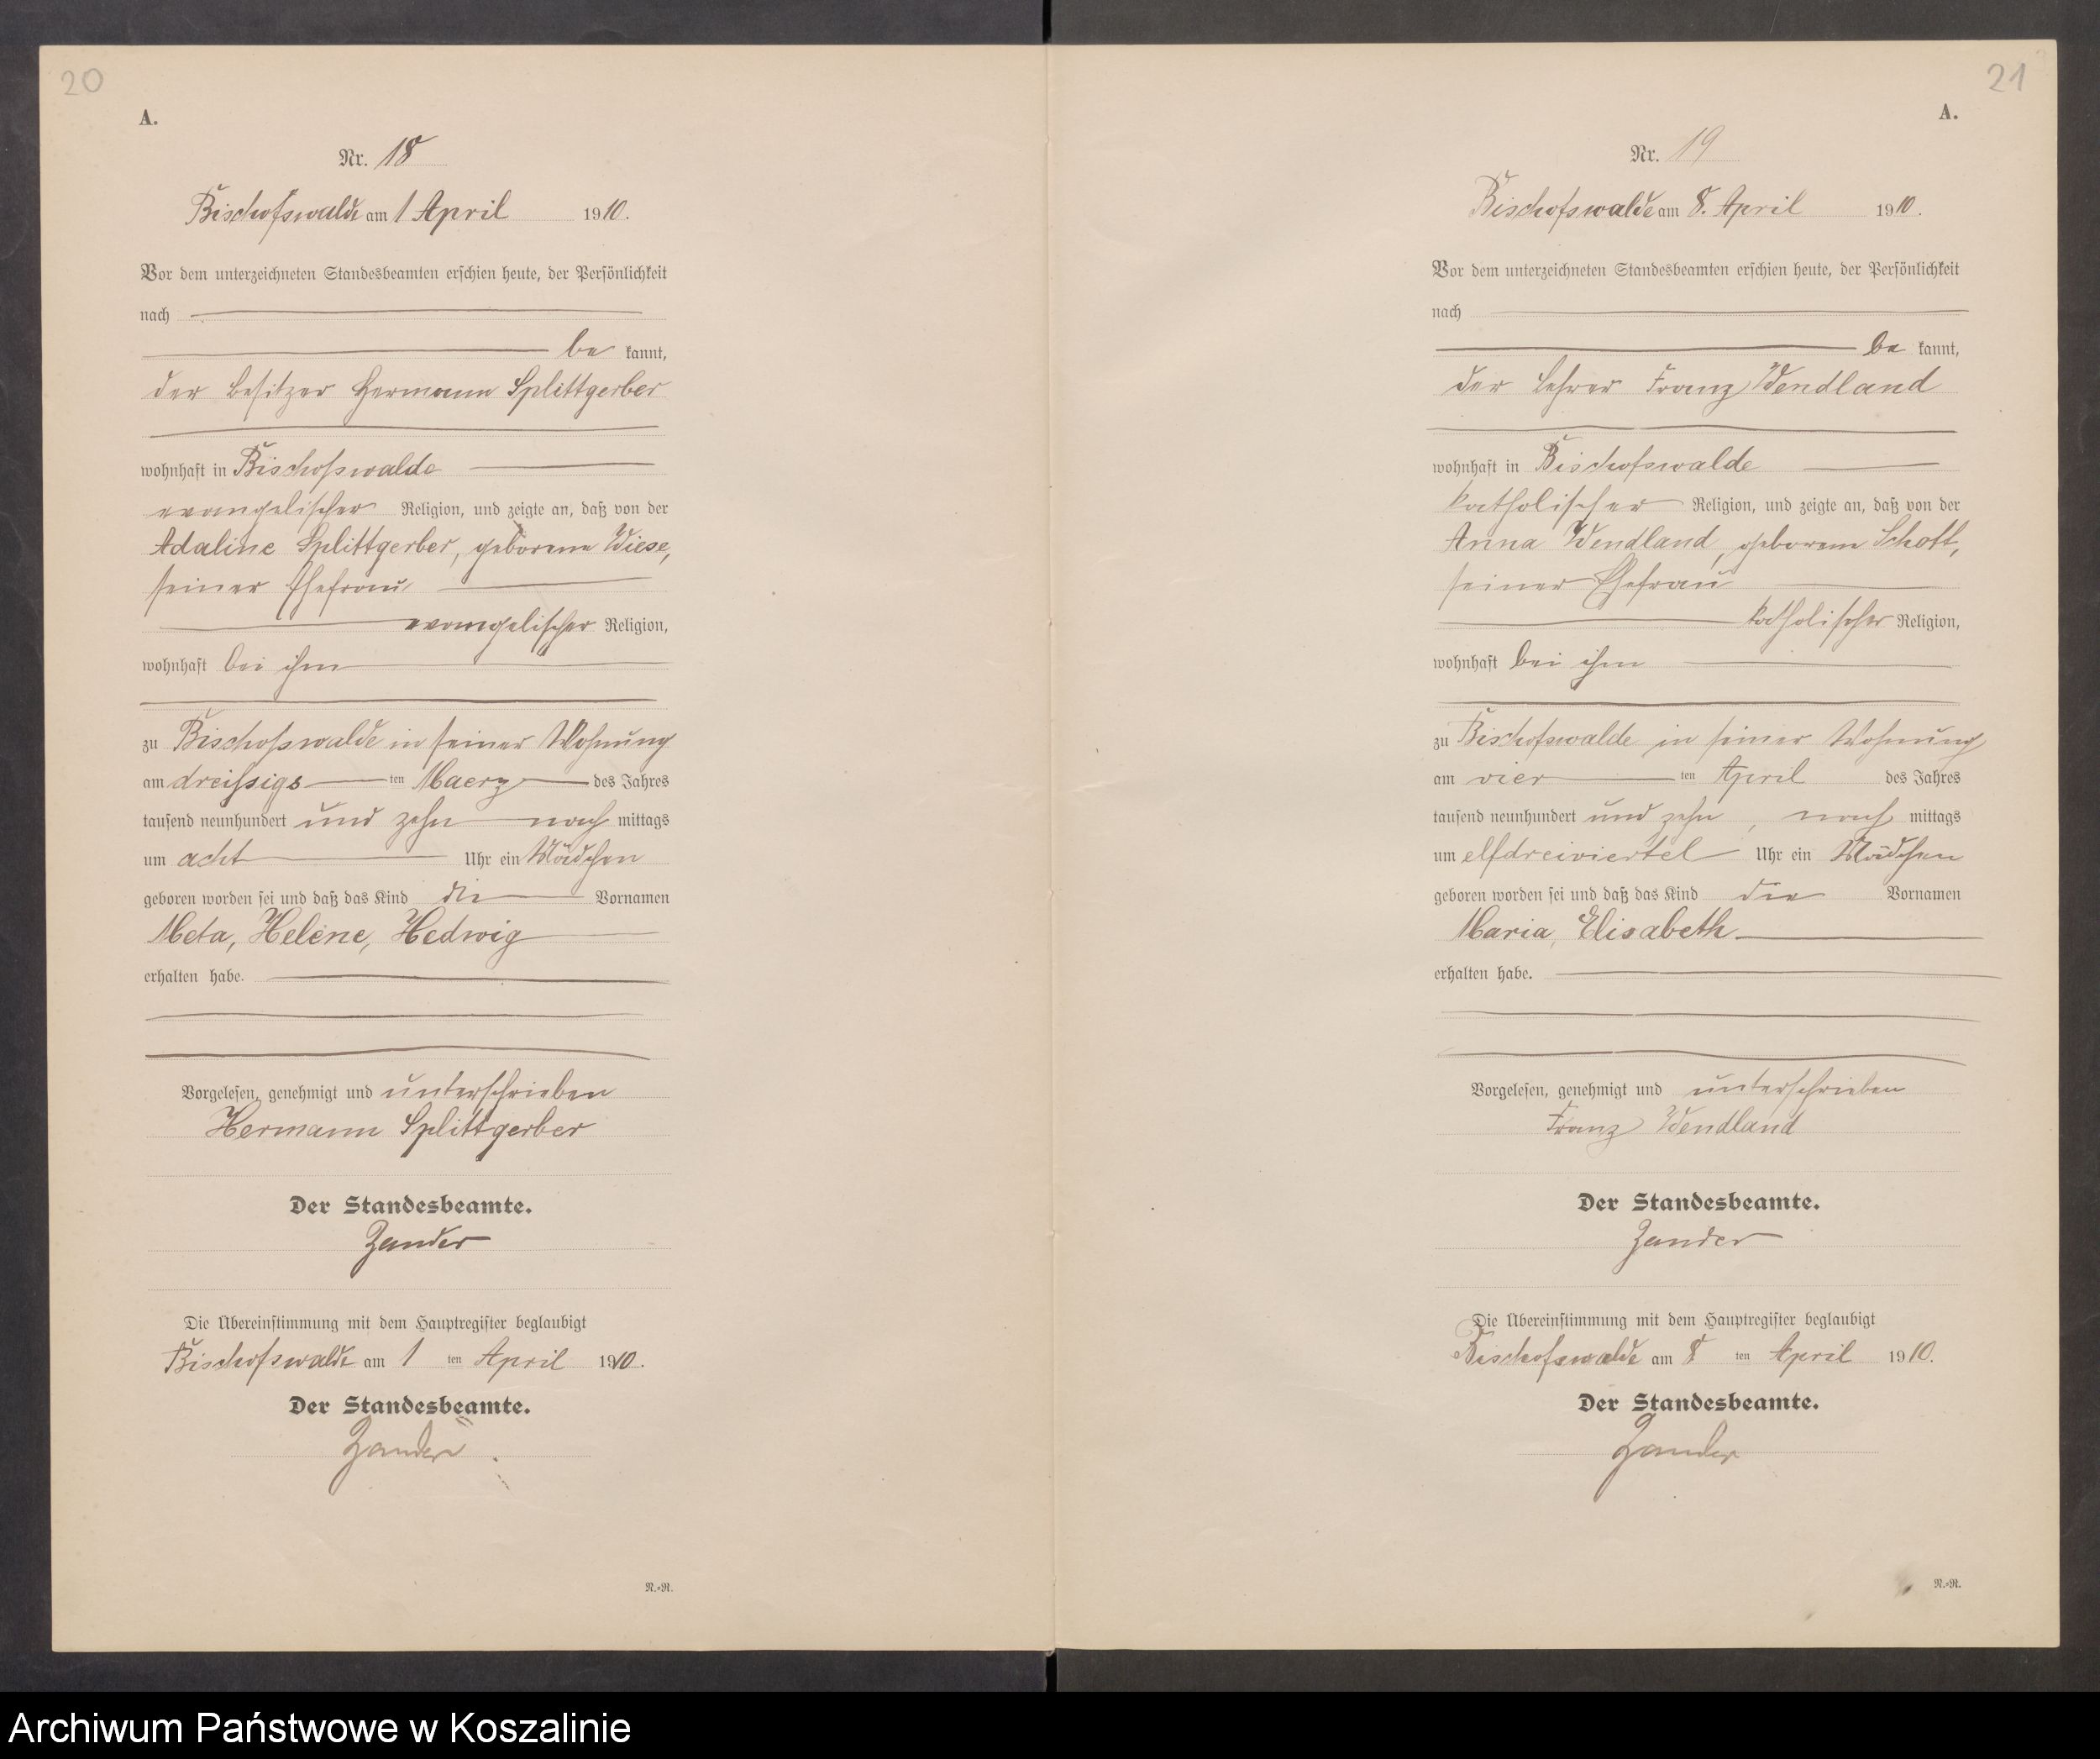 20
A.
Nr. 18
Bischofswalde am 1 April 1910.
Vor dem unterzeichneten Standesbeamten erschien heute, der Persönlichkeit
nach
be kannt,
der Besitzer Hermann Splittgerber
wohnhaft in Bischofswalde
evangelischer Religion, und zeigte an, daß von der
Adaline Splittgerber, geborene Wiese,
seiner Ehefrau
evangelischer Religion,
wohnhaft bei ihm
zu Bischofswalde in seiner Wohnung
am dreissigs ten Maerz des Jahres
tausend neunhundert und zehn nach mittags
um acht Uhr ein Mädchen
geboren worden sei und daß das Kind die Vornamen
Meta, Helene, Hedwig
erhalten habe.
Vorgelesen, genehmigt und unterschrieben
Hermann Splittgerber
Der Standesbeamte.
Zander
Die Übereinstimmung mit dem Hauptregister beglaubigt
Bischofswalde am 1 ten April 1910.
Der Standesbeamte.
Zander
N.-R.
21
A.
Nr. 19
Bischofswalde am 8. April 1910.
Vor dem unterzeichneten Standesbeamten erschien heute, der Persönlichkeit
nach
be kannt,
der Lehrer Franz Wendland
wohnhaft in Bischofswalde
katholischer Religion, und zeigte an, daß von der
Anna Wendland, geborene Schott,
seiner Ehefrau
katholischer Religion,
wohnhaft bei ihm
zu Bischofswalde in seiner Wohnung
am vier ten April des Jahres
tausend neunhundert und zehn, nach mittags
um elfdreiviertel Uhr ein Mädchen
geboren worden sei und daß das Kind die Vornamen
Maria, Elisabeth
erhalten habe.
Vorgelesen, genehmigt und unterschrieben
Franz Wendland
Der Standesbeamte.
Zander
Die Übereinstimmung mit dem Hauptregister beglaubigt
Bischofswalde am 8 ten April 1910.
Der Standesbeamte.
Zander
N.-R.
Archiwum Państwowe w Koszalinie